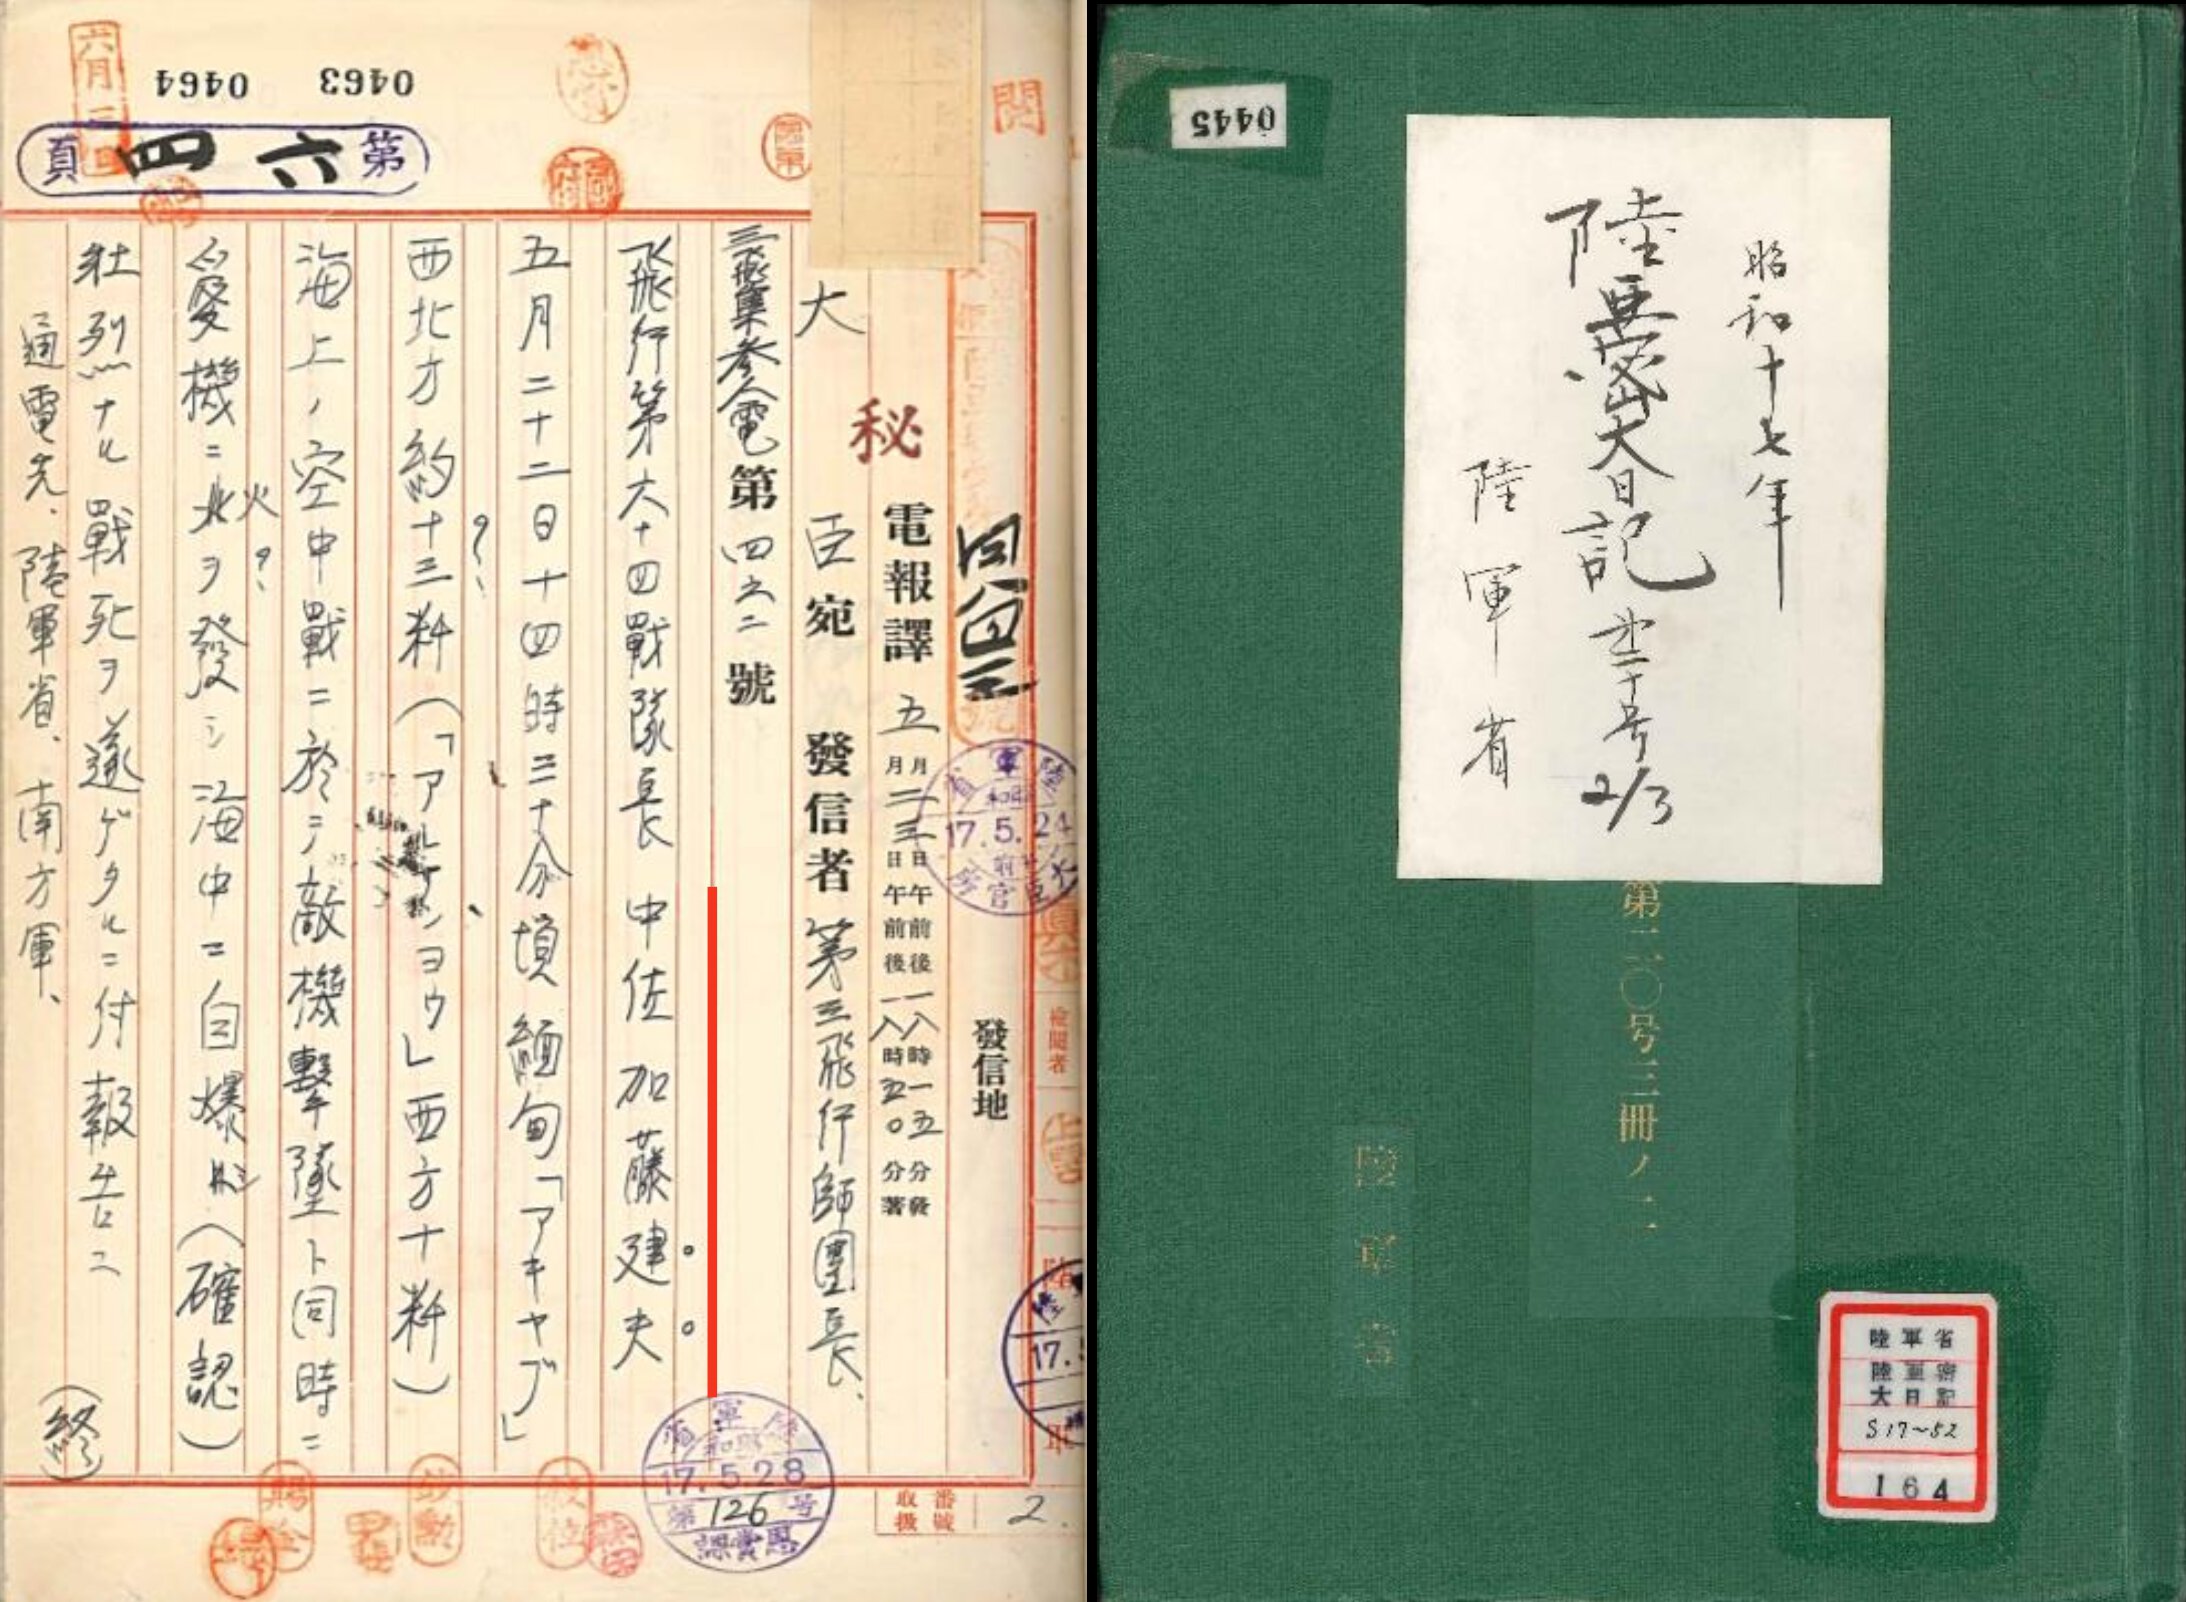 0464
0463
第六四頁
閲
秘
電報譯
五月二三日午前後一八時一五分發
月日午前後一八時五〇分著
發信地
大臣宛
發信者 第三飛行師團長、
三飛集參電第四之二號
飛行第六十四戰隊長 中佐 加藤建夫
五月二十二日十四時三十分頃緬甸「アキヤブ」
西北方約十三粁(「アルサンヨウ」西方十粁)
海上ノ空中戰ニ於テ敵機擊墜ト同時ニ
愛機ニ火ヲ發シ海中ニ自爆シ(確認)
火?、
壯烈ナル戰死ヲ遂ゲタルニ付報告ス
通電先、陸軍省、南方軍、
(終)
陸軍省
17.5.24
陸軍省
昭和
17.5.28
第126号
恩賞課
檢閲者
番號
取扱
2.
0445
昭和十七年
陸亜密大日記 第二十号 2/3
陸軍省
第二〇号三冊ノ二
陸軍省
陸軍省
陸亜密
大日記
S17~52
164